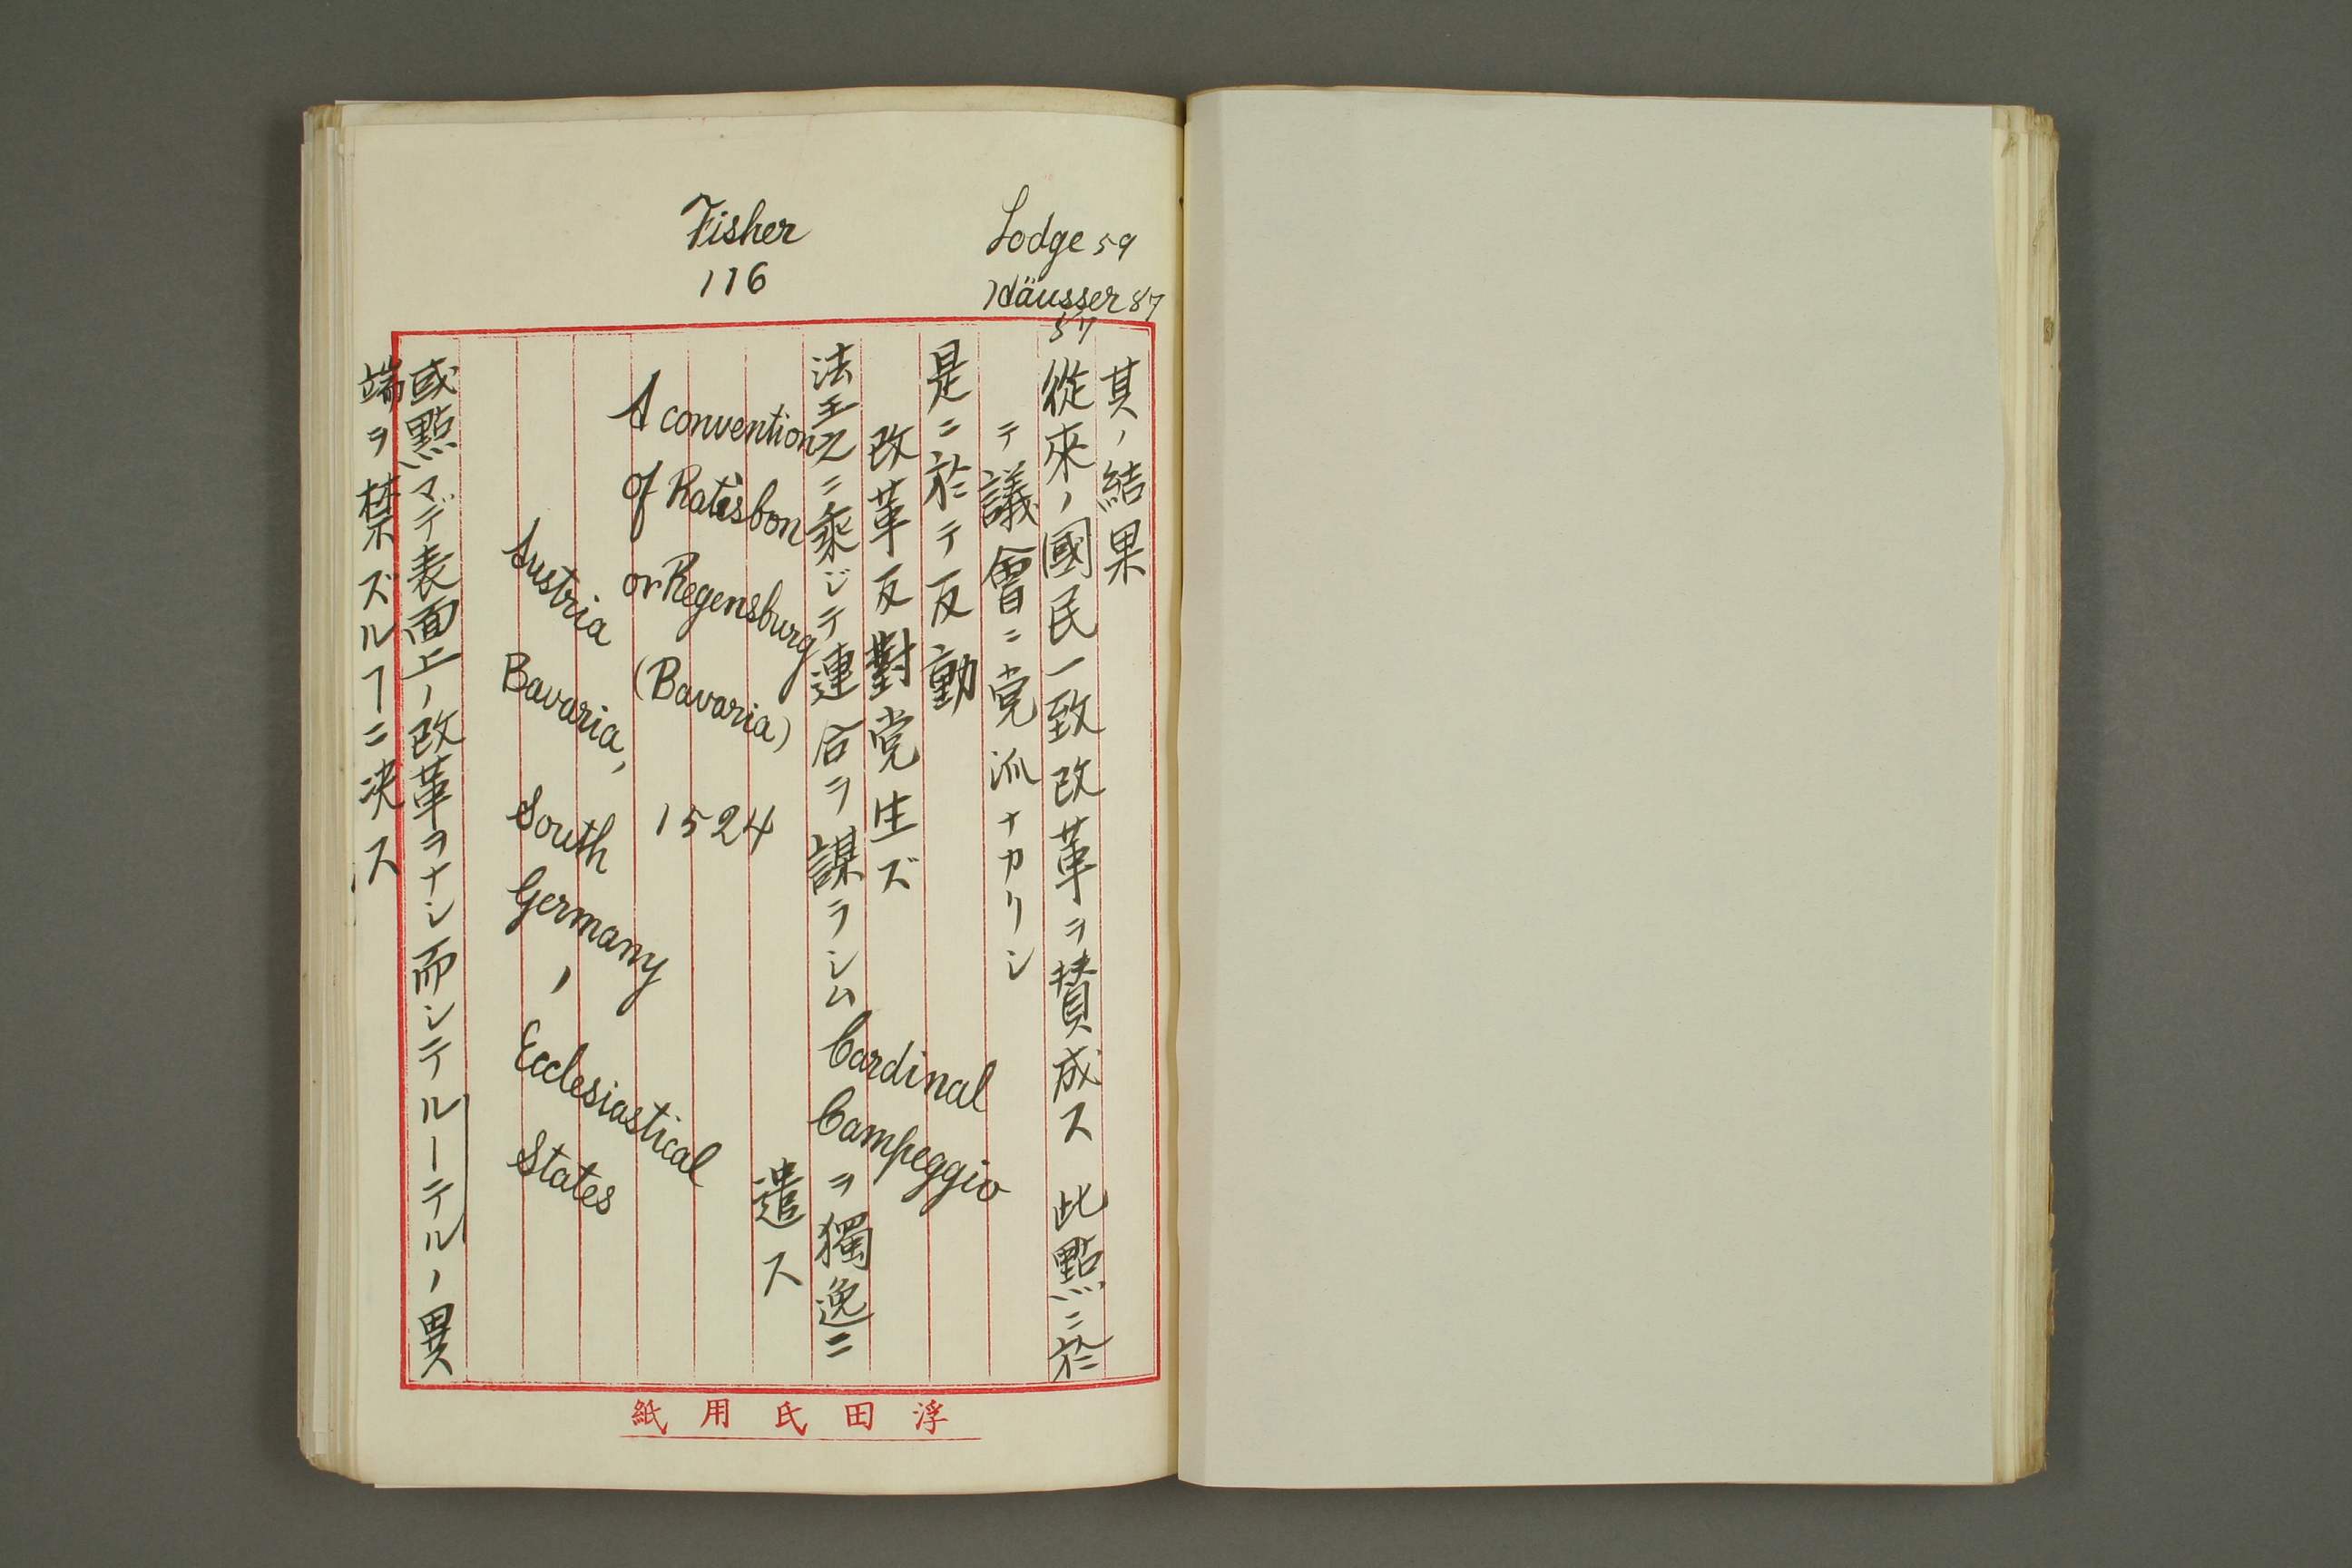 Lodge 59
Häusser 87
57
Fisher
116
其ノ結果
從來ノ國民一致改革ヲ賛成ス 此點ニ於
テ議會ニ党派ナカリシ
是ニ於テ反動
改革反對党生ズ
法王之ニ乘ジテ連合ヲ謀ラシム Cardinal Campeggio ヲ獨逸ニ
遣ス
A convention
of Ratisbon
or Regensburg
(Bavaria)
1524
Austria
Bavaria,
South
Germany,
Ecclesiastical
States
或點マデ表面上ノ改革ヲナシ而シテルーテルノ異
端ヲ禁ズルヿニ決ス
浮田氏用紙